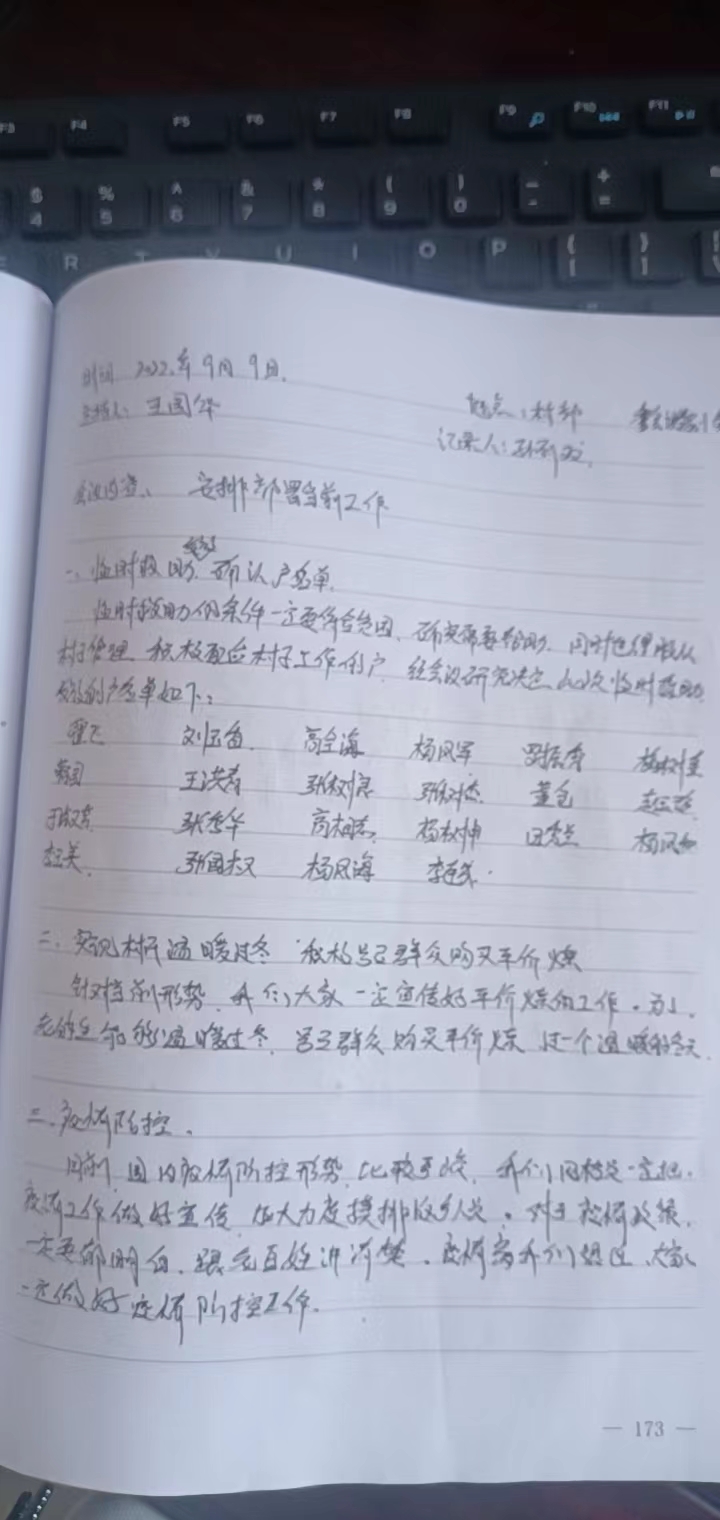 F3 F4 F5 F6 F7 F8 F9 F10 F11
$ % ^ & * ( ) _ +
4 5 6 7 8 9 0 - =
E R T Y U I O P { }
[ ]
时间 2022年9月9日.
地点:村部
主持人:王国华
记录人:
会议内容、 安排部署当前工作
一、临时救助 确认户名单.
临时救助的条件一定要符合贫困、确实需要帮助、同时也得服从
村子管理 积极配合村子工作的户 经会议研究决定 此次临时救助
的户名单如下:
翟飞 刘玉香 高全海 杨凤军
王洪春 张树良 张树杰 董仓
张秀华 杨树坤
张国权 杨凤海
二、实现村子温暖过冬 积极号召群众购买平价煤
针对当前形势、我们大家一定宣传好平价煤的工作。为了
老百姓能温暖过冬、号召群众购买平价煤 过一个温暖的冬天
三、疫情防控、
目前 国内疫情防控形势 比较严峻、我们网格员一定把
疫情工作做好宣传 加大力度摸排返乡人员。对于疫情政策、
一定要都明白、跟老百姓讲清楚、疫情离我们很近、大家
一定做好疫情防控工作.
— 173 —